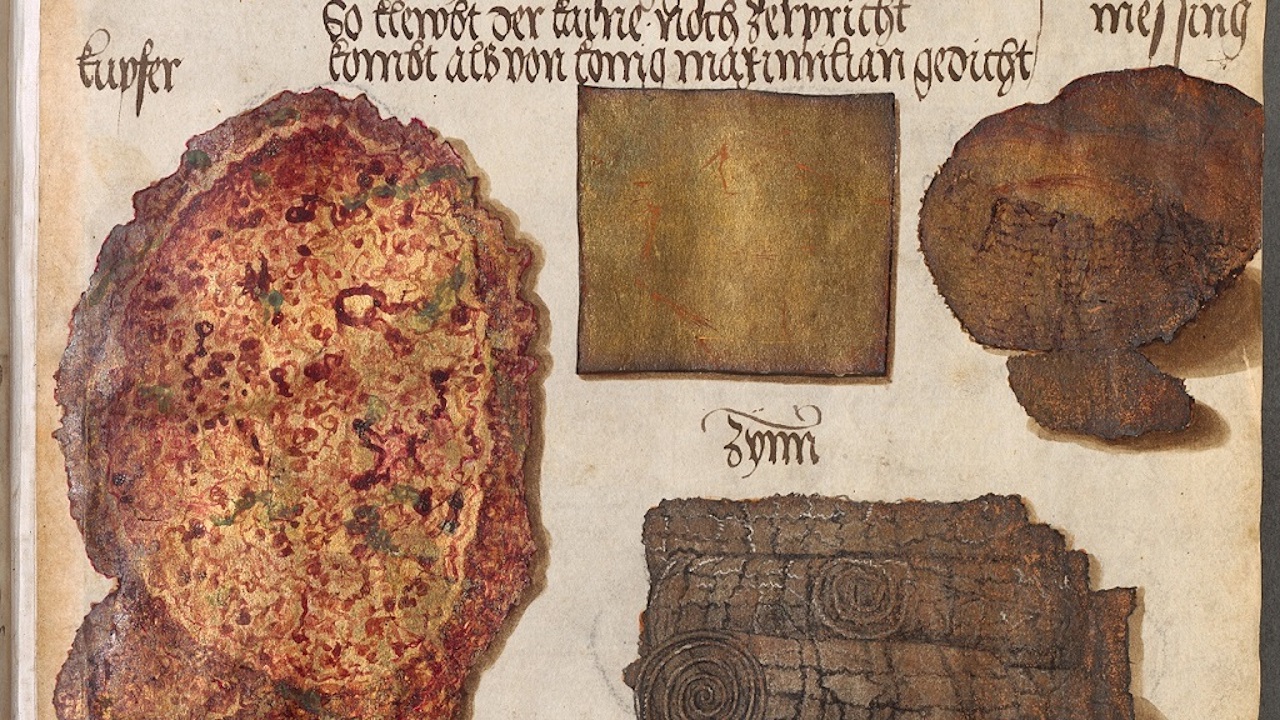 So klewbt der kaine noch zerpricht
kombt als von konig maximilian gedicht
kupfer
messing
Zynn